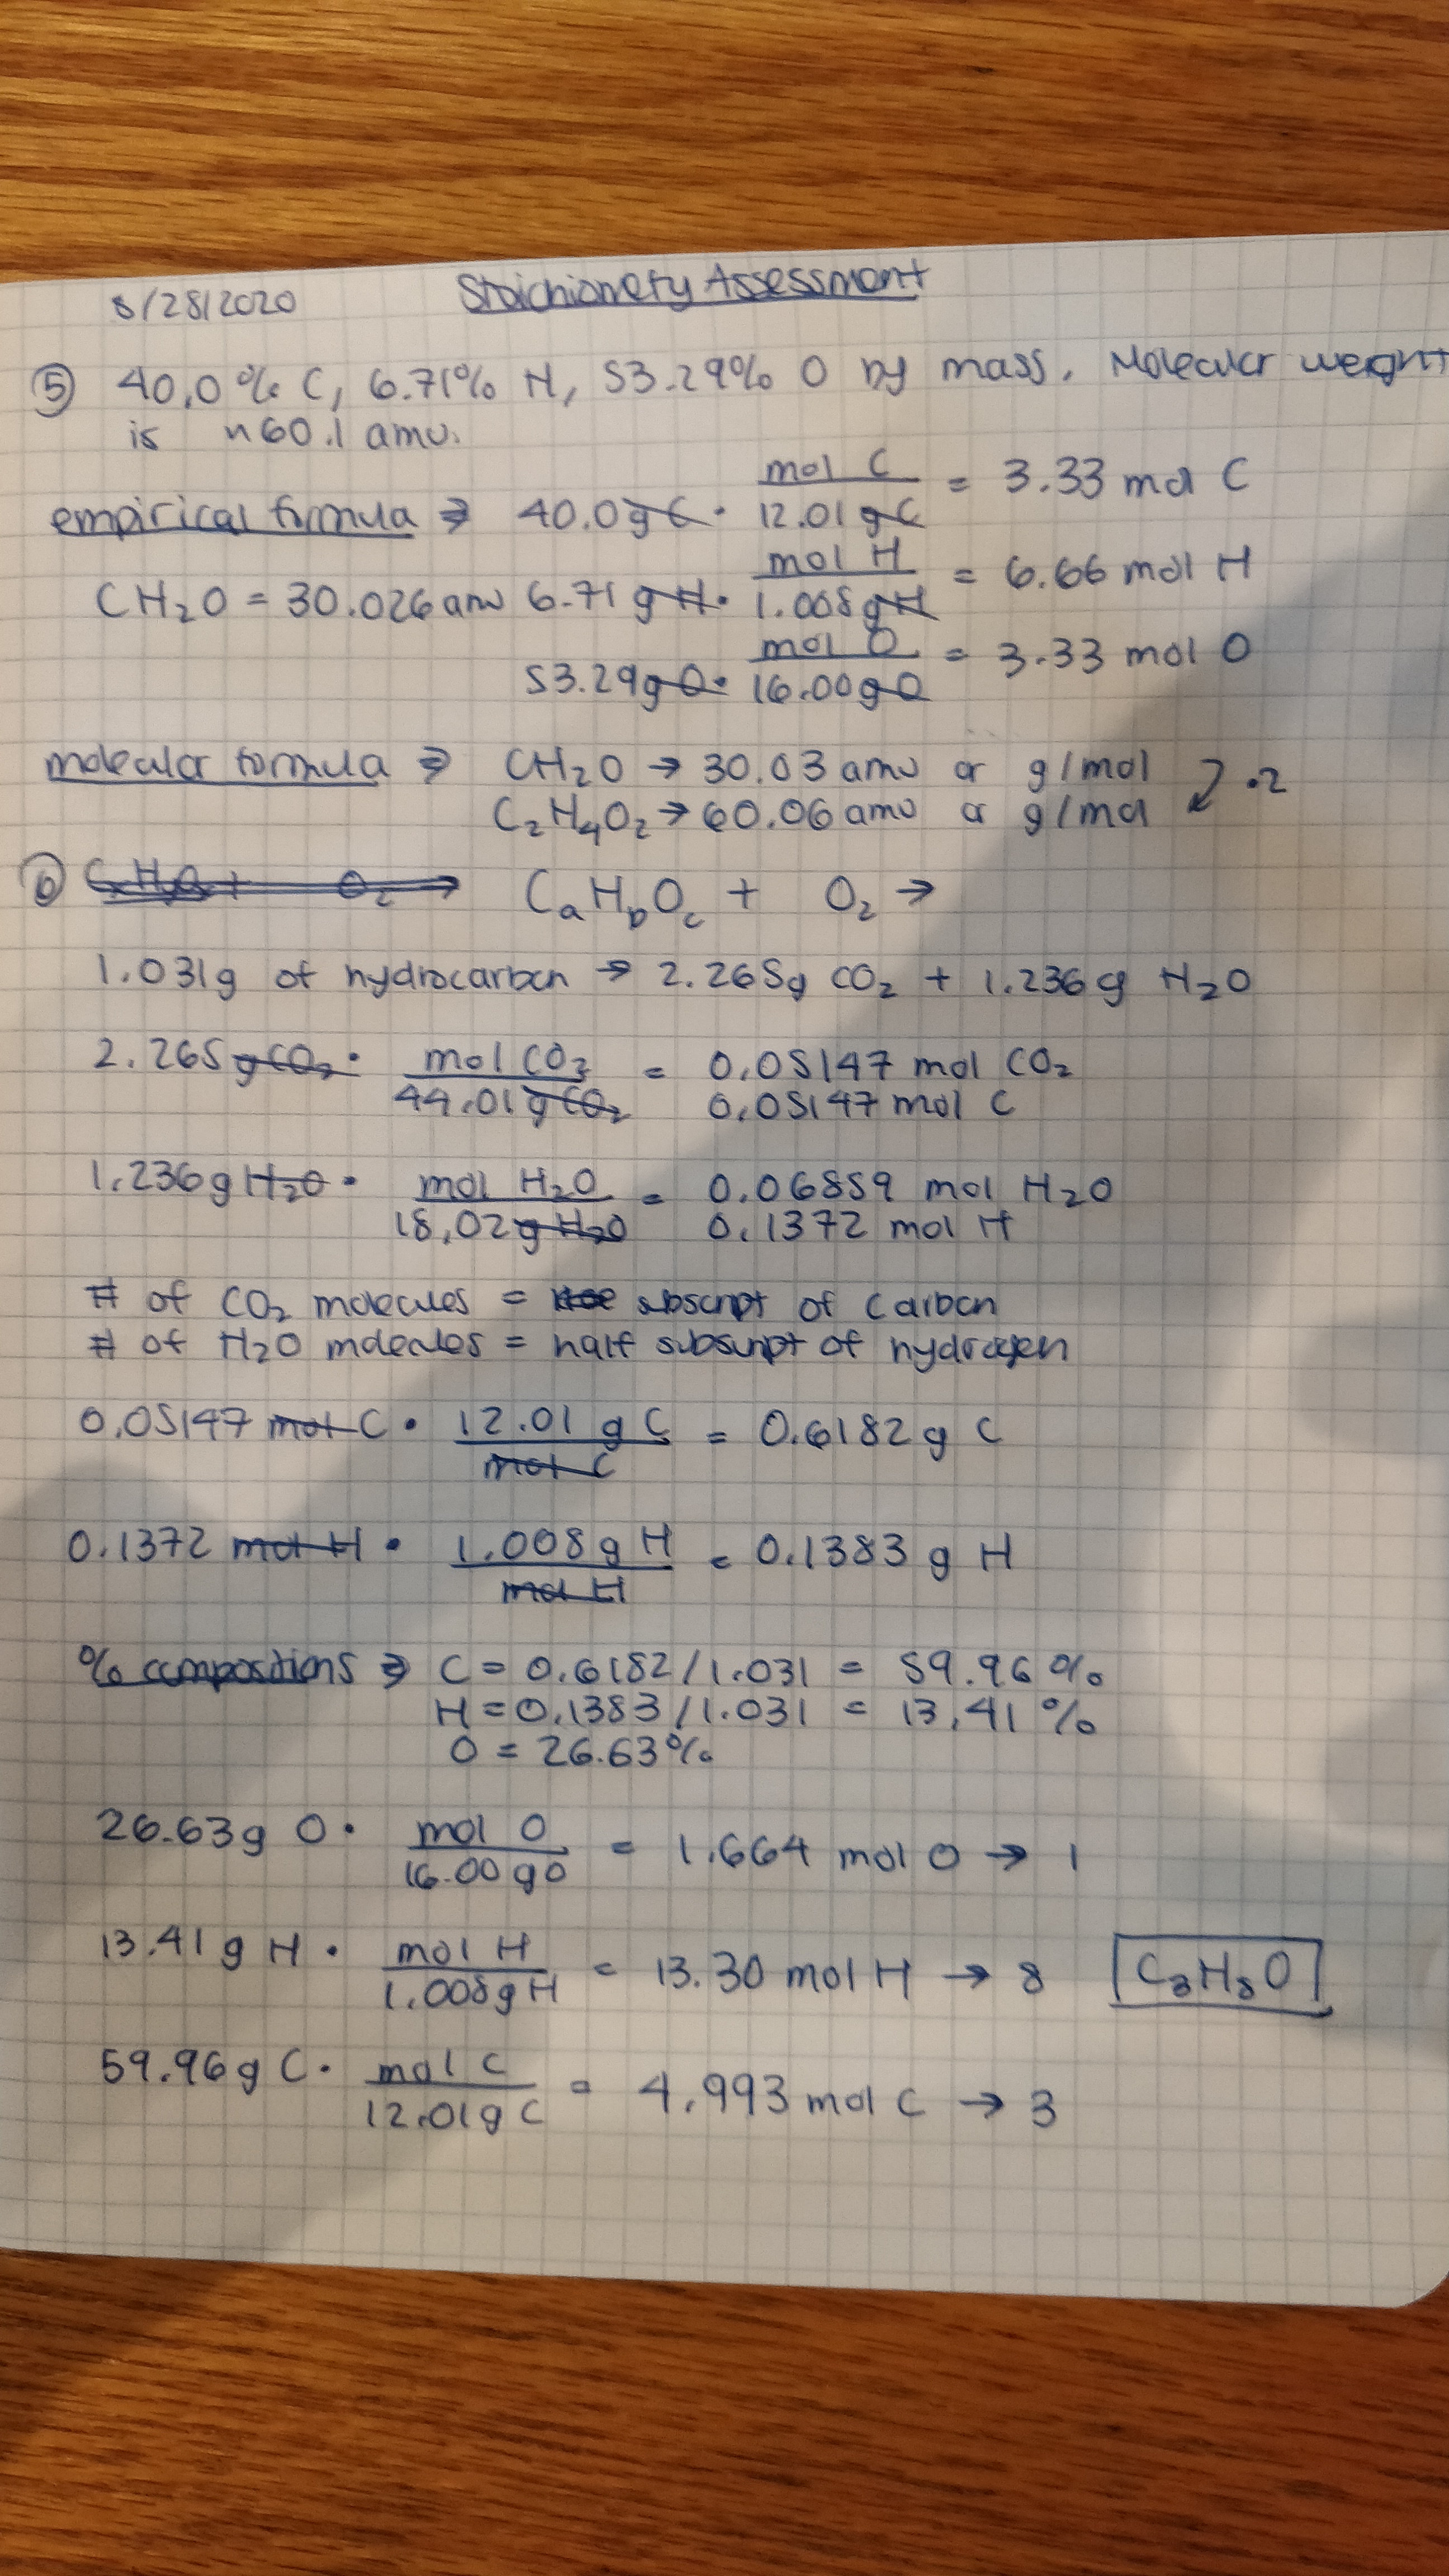 8/28/2020 Stoichiometry Assessment
⑤ 40.0% C, 6.71% H, 53.29% O by mass. Molecular weight
is ~60.1 amu.
empirical formula ⇒ 40.0 g C · mol C / 12.01 g C = 3.33 mol C
CH₂O = 30.026 amu 6.71 g H · mol H / 1.008 g H = 6.66 mol H
53.29 g O · mol O / 16.00 g O = 3.33 mol O
molecular formula ⇒ CH₂O → 30.03 amu or g/mol
C₂H₄O₂ → 60.06 amu or g/mol ·2
⑥ O₂ → CₐH_bO_c + O₂ →
1.031g of hydrocarbon → 2.265g CO₂ + 1.236g H₂O
2.265 g CO₂ · mol CO₂ / 44.01 g CO₂ = 0.05147 mol CO₂
0.05147 mol C
1.236 g H₂O · mol H₂O / 18.02 g H₂O = 0.06859 mol H₂O
0.1372 mol H
# of CO₂ molecules = subscript of carbon
# of H₂O molecules = half subscript of hydrogen
0.05147 mol C · 12.01 g C / mol C = 0.6182 g C
0.1372 mol H · 1.008 g H / mol H = 0.1383 g H
% compositions ⇒ C = 0.6182/1.031 = 59.96%
H = 0.1383/1.031 = 13.41%
O = 26.63%
26.63g O · mol O / 16.00 g O = 1.664 mol O → 1
13.41 g H · mol H / 1.008 g H = 13.30 mol H → 8 C₃H₈O
59.96 g C · mol C / 12.01 g C = 4.993 mol C → 3